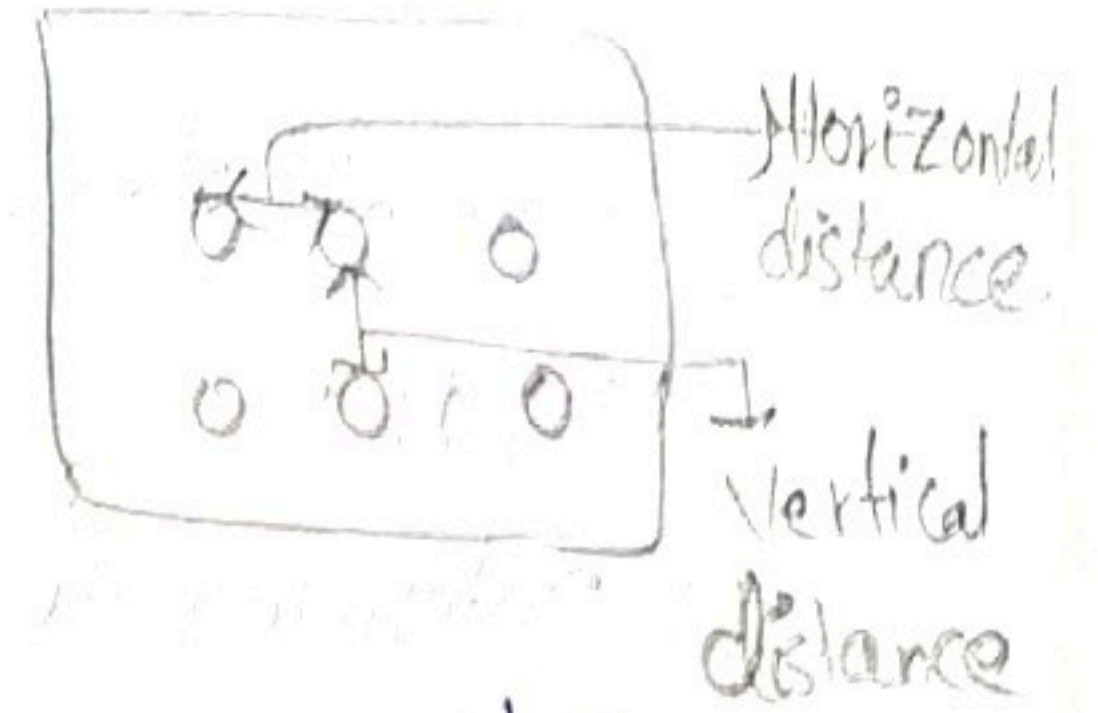 Horizontal
distance
Vertical
distance